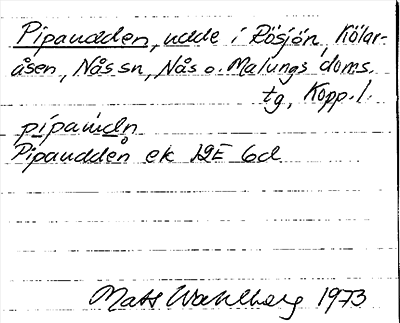 Pipaudden, udde i Rösjön, Kölar-
åsen, Nås sn, Nås o. Malungs doms.
tg, Kopp. l.
pipanidn
Pipaudden ek 12E 6d
Mats Wahlberg 1973